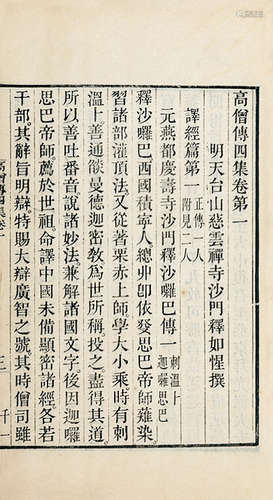 高僧傳四集卷第一
明天台山慈雲禪寺沙門釋如惺撰
譯經篇第一 正傳一人 附見二人
元燕都慶壽寺沙門釋沙囉巴傳一 刺溫卜 迦囉思巴
釋沙囉巴西國積寧人總丱卽依癹思巴帝師薙染
習諸部灌頂法又從著栗赤上師學大小乘時有刺
溫卜善通燄曼德迦密敎爲世所稱投之盡得其道
所以善吐番音說諸妙法兼解諸國文字後因迦囉
思巴帝師薦於世祖命譯中國未備顯密諸經各若
干部其辭旨明辯特賜大辯廣智之號其時僧司雖
高僧傳四集卷一